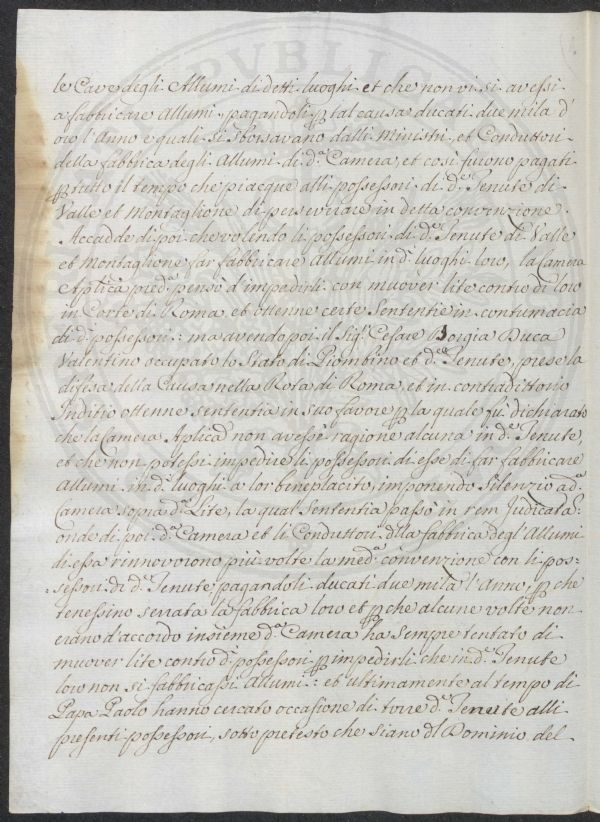 le Cave degli Allumi di detti luoghi et che non vi si avessi
a fabbricare Allumi, pagandoli p tal causa ducati due mila d'
oro l'Anno e quali si sborsavano dalli Ministri, et Conduttori
della fabbrica degli Allumi di d.ᵃ Camera, et così furono pagati
p tutto il tempo che piacque alli possessori di d.ᵉ Tenute di
Valle et Montaglione di perseverare in detta convenzione.
Accadde di poi che volendo li possessori di d.ᵉ Tenute di Valle
et Montaglione far fabbricare Allumi in d.ⁱ luoghi loro, la Camera
Aplica pred.ᵃ pensò d'impedirli con muover lite contro di loro
in Corte di Roma, et ottenne certe Sententie in contumacia
di d.ⁱ possessori: ma avendo poi il Sig.ʳ Cesare Borgia Duca
Valentino occupato lo Stato di Piombino et d.ᵉ Tenute, prese la
difesa della Causa nella Rota di Roma et in contradittorio
Inditio ottenne sententia in suo favore p la quale fu dichiarato
che la Camera Aplica non avesse ragione alcuna in d.ᵉ Tenute,
et che non potessi impedire li possessori di esse di far fabbricare
Allumi in d.ⁱ luoghi a lor beneplacito, imponendo silenzio a d.ᵃ
Camera sopra d.ᵃ Lite, la qual Sententia passò in rem Judicatā:
onde di poi d.ᵃ Camera et li Conduttori dlla fabbrica degl'Allumi
di essa rinnovorono più volte la med.ᵃ convenzione con li pos=
=sessori di d.ᵉ Tenute pagandoli ducati due mila l'Anno, p che
tenessino serrata la fabbrica loro et p che alcune volte non
erano d'accordo insieme d.ᵃ Camera ha sempre tentato di
muover lite contro d.ⁱ possessori p impedirli che in d.ᵉ Tenute
loro non si fabbricassi Allumi: et ultimamente al tempo di
Papa Paolo hanno cercato occasione di torre d.ᵉ Tenute alli
presenti possessori, sotto pretesto che siano dl Dominio del